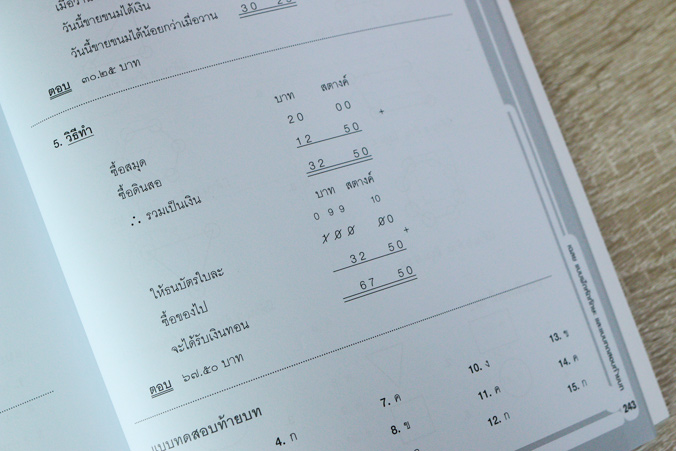 วันนี้ขายขนมได้เงิน
วันนี้ขายขนมได้น้อยกว่าเมื่อวาน 30 25
ตอบ ๓๐.๒๕ บาท
5. วิธีทำ
บาท สตางค์
ซื้อสมุด 20 00
+
ซื้อดินสอ 12 50
∴ รวมเป็นเงิน 32 50
บาท สตางค์
0 9 9 10
ให้ธนบัตรใบละ 1 0 0 0 0
+
ซื้อของไป 32 50
จะได้รับเงินทอน 67 50
ตอบ ๖๗.๕๐ บาท
แบบทดสอบท้ายบท
4. ก
7. ค
8. ข
10. ง
11. ค
12. ก
13. ข
14. ค
15. ก
243